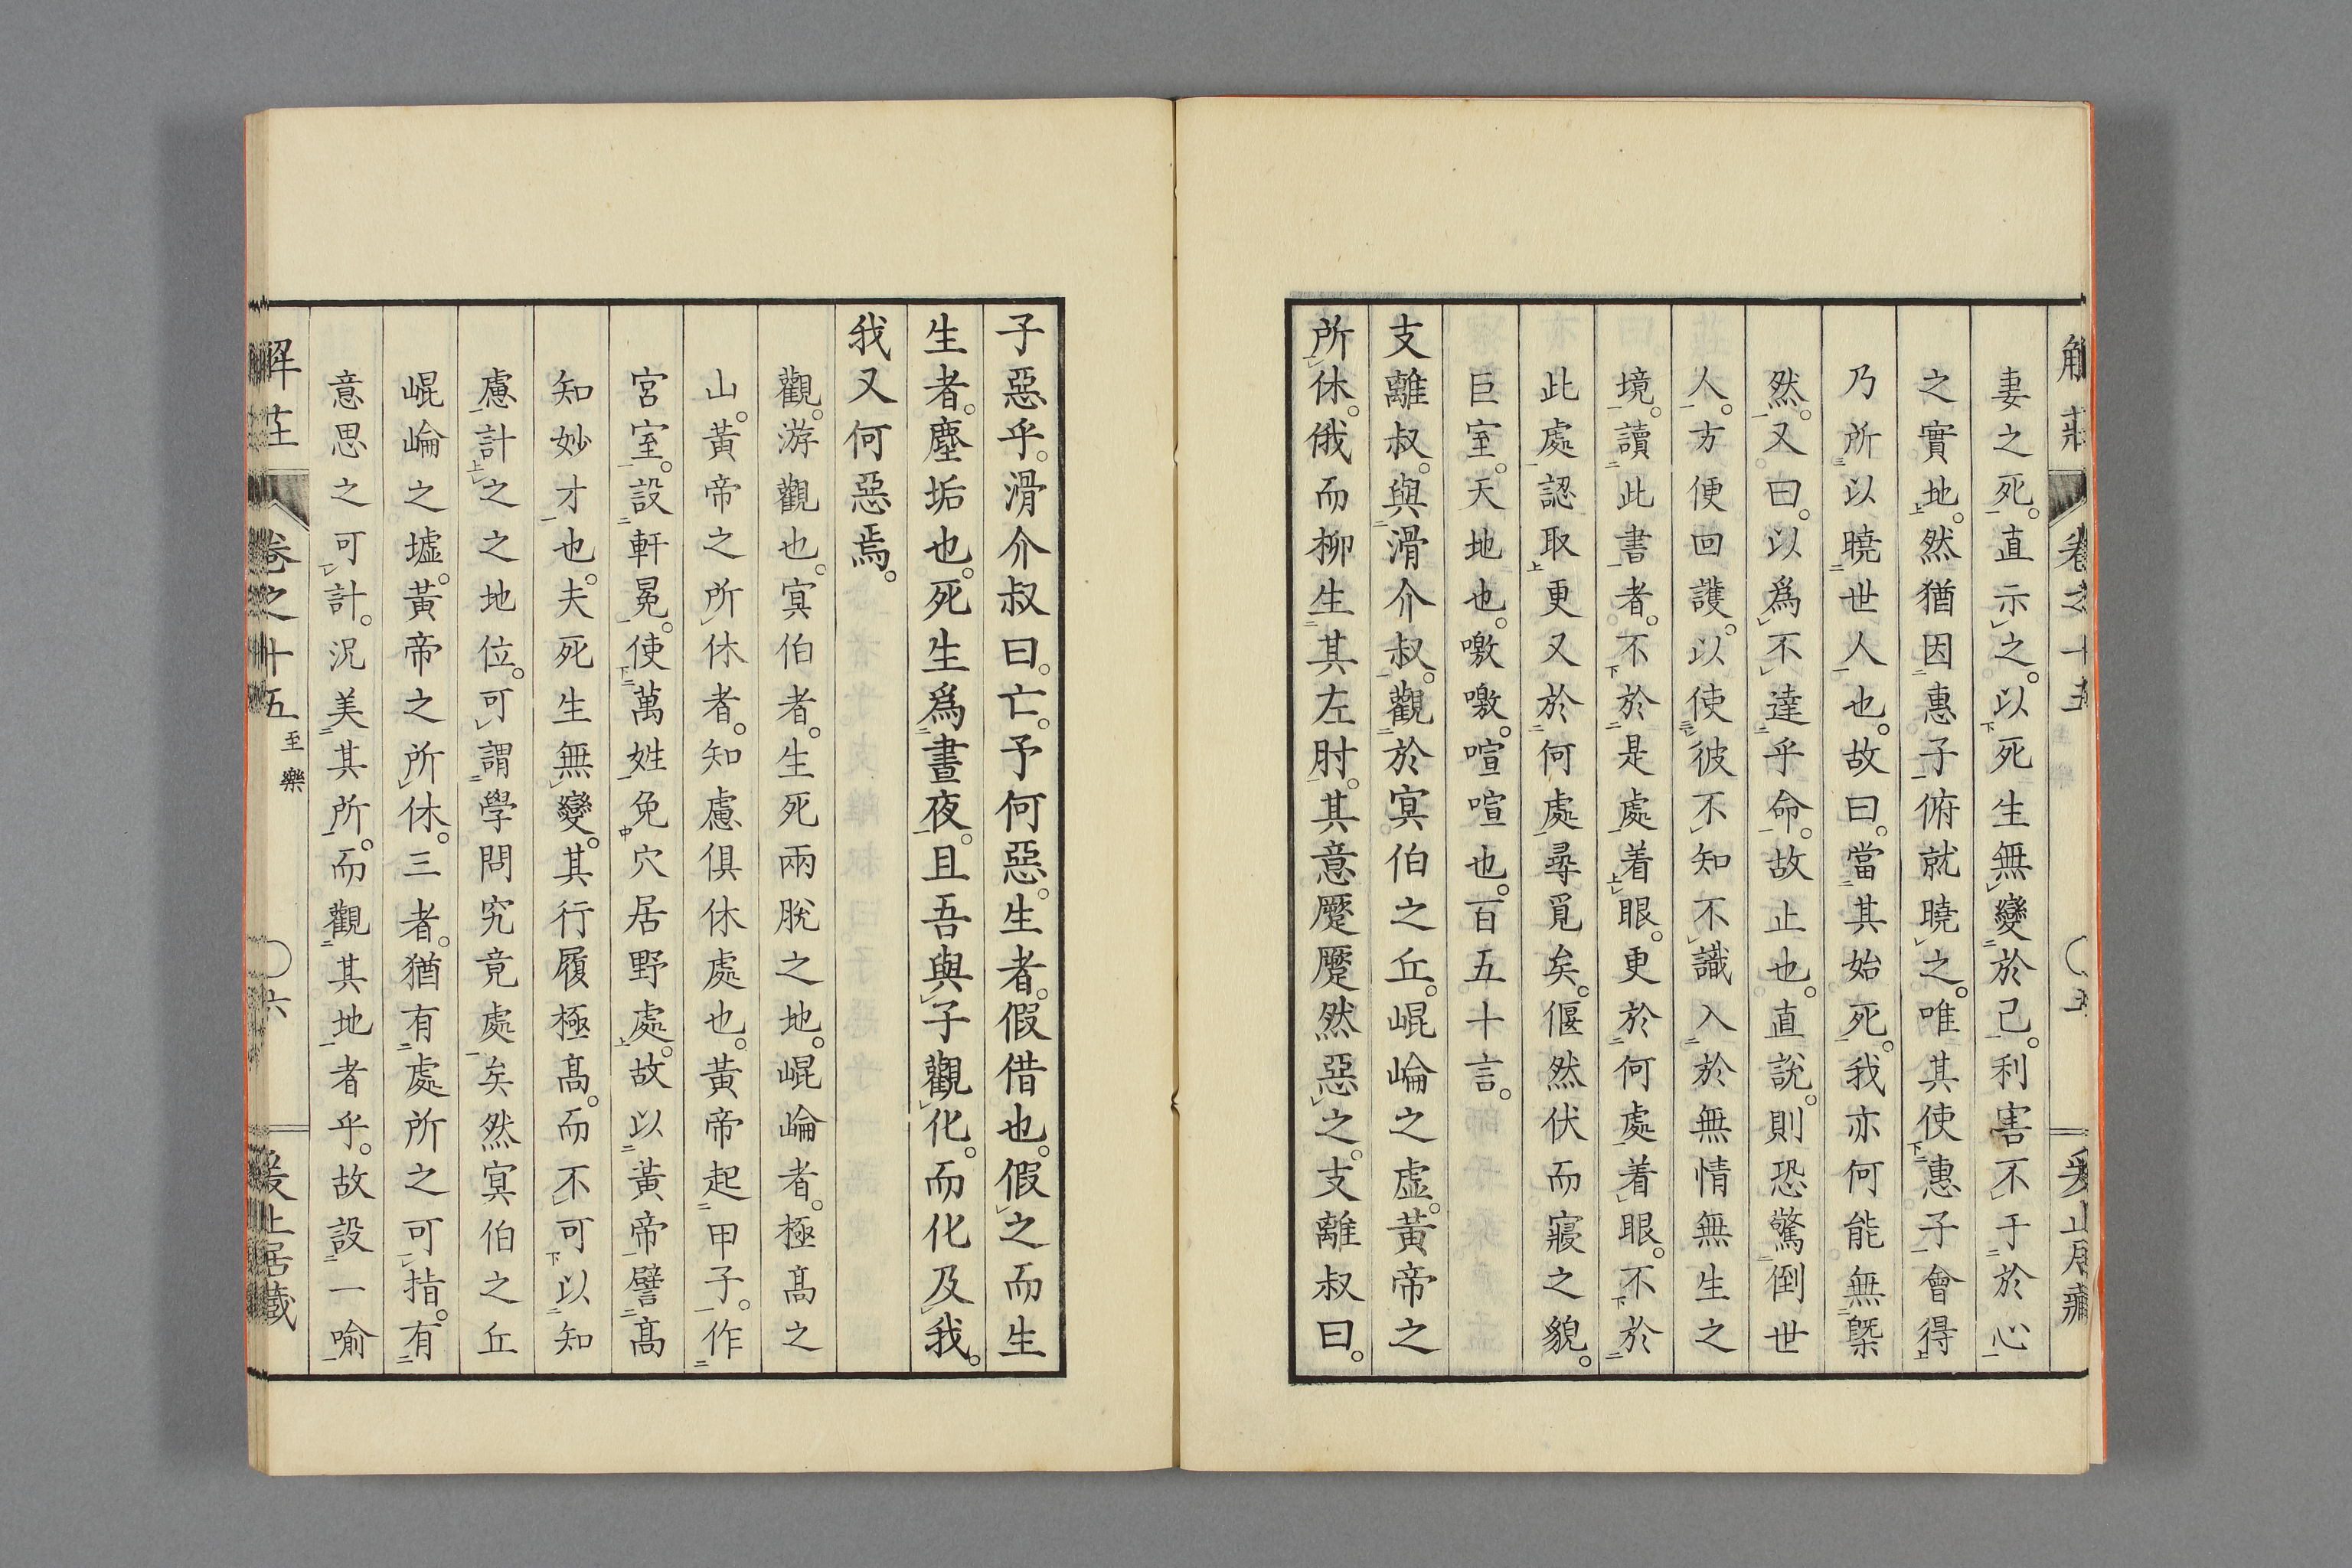 妻之死。直示之。以死生無變於己。利害不于於心
之實地。然猶因惠子俯就曉之。唯其使惠子會得
乃所以曉世人也。故曰。當其始死。我亦何能無槩
然。又曰。以爲不達乎命。故止也。直說。則恐驚倒世
人。方便回護。以使彼不知不識入於無情無生之
境。讀此書者。不於是處着眼。更於何處着眼。不於
此處認取更又於何處尋覓矣。偃然伏而寢之貌。
巨室。天地也。噭噭。喧喧也。百五十言。
支離叔。與滑介叔。觀於冥伯之丘。崐崘之虛。黃帝之
所休。俄而柳生其左肘。其意蹷蹷然惡之。支離叔曰。
子惡乎。滑介叔曰。亡。予何惡。生者。假借也。假之而生
生者。塵垢也。死生爲晝夜。且吾與子觀化。而化及我。
我又何惡焉。
觀。游觀也。冥伯者。生死兩脫之地。崐崘者。極高之
山。黃帝之所休者。知慮俱休處也。黃帝起甲子。作
宮室。設軒冕。使萬姓免穴居野處。故以黃帝譬高
知妙才也。夫死生無變。其行履極高。而不可以知
慮計之之地位。可謂學問究竟處矣然冥伯之丘
崐崘之墟。黃帝之所休。三者。猶有處所之可指。有
意思之可計。況美其所。而觀其地者乎。故設一喻
卷之十五 至樂 〇六